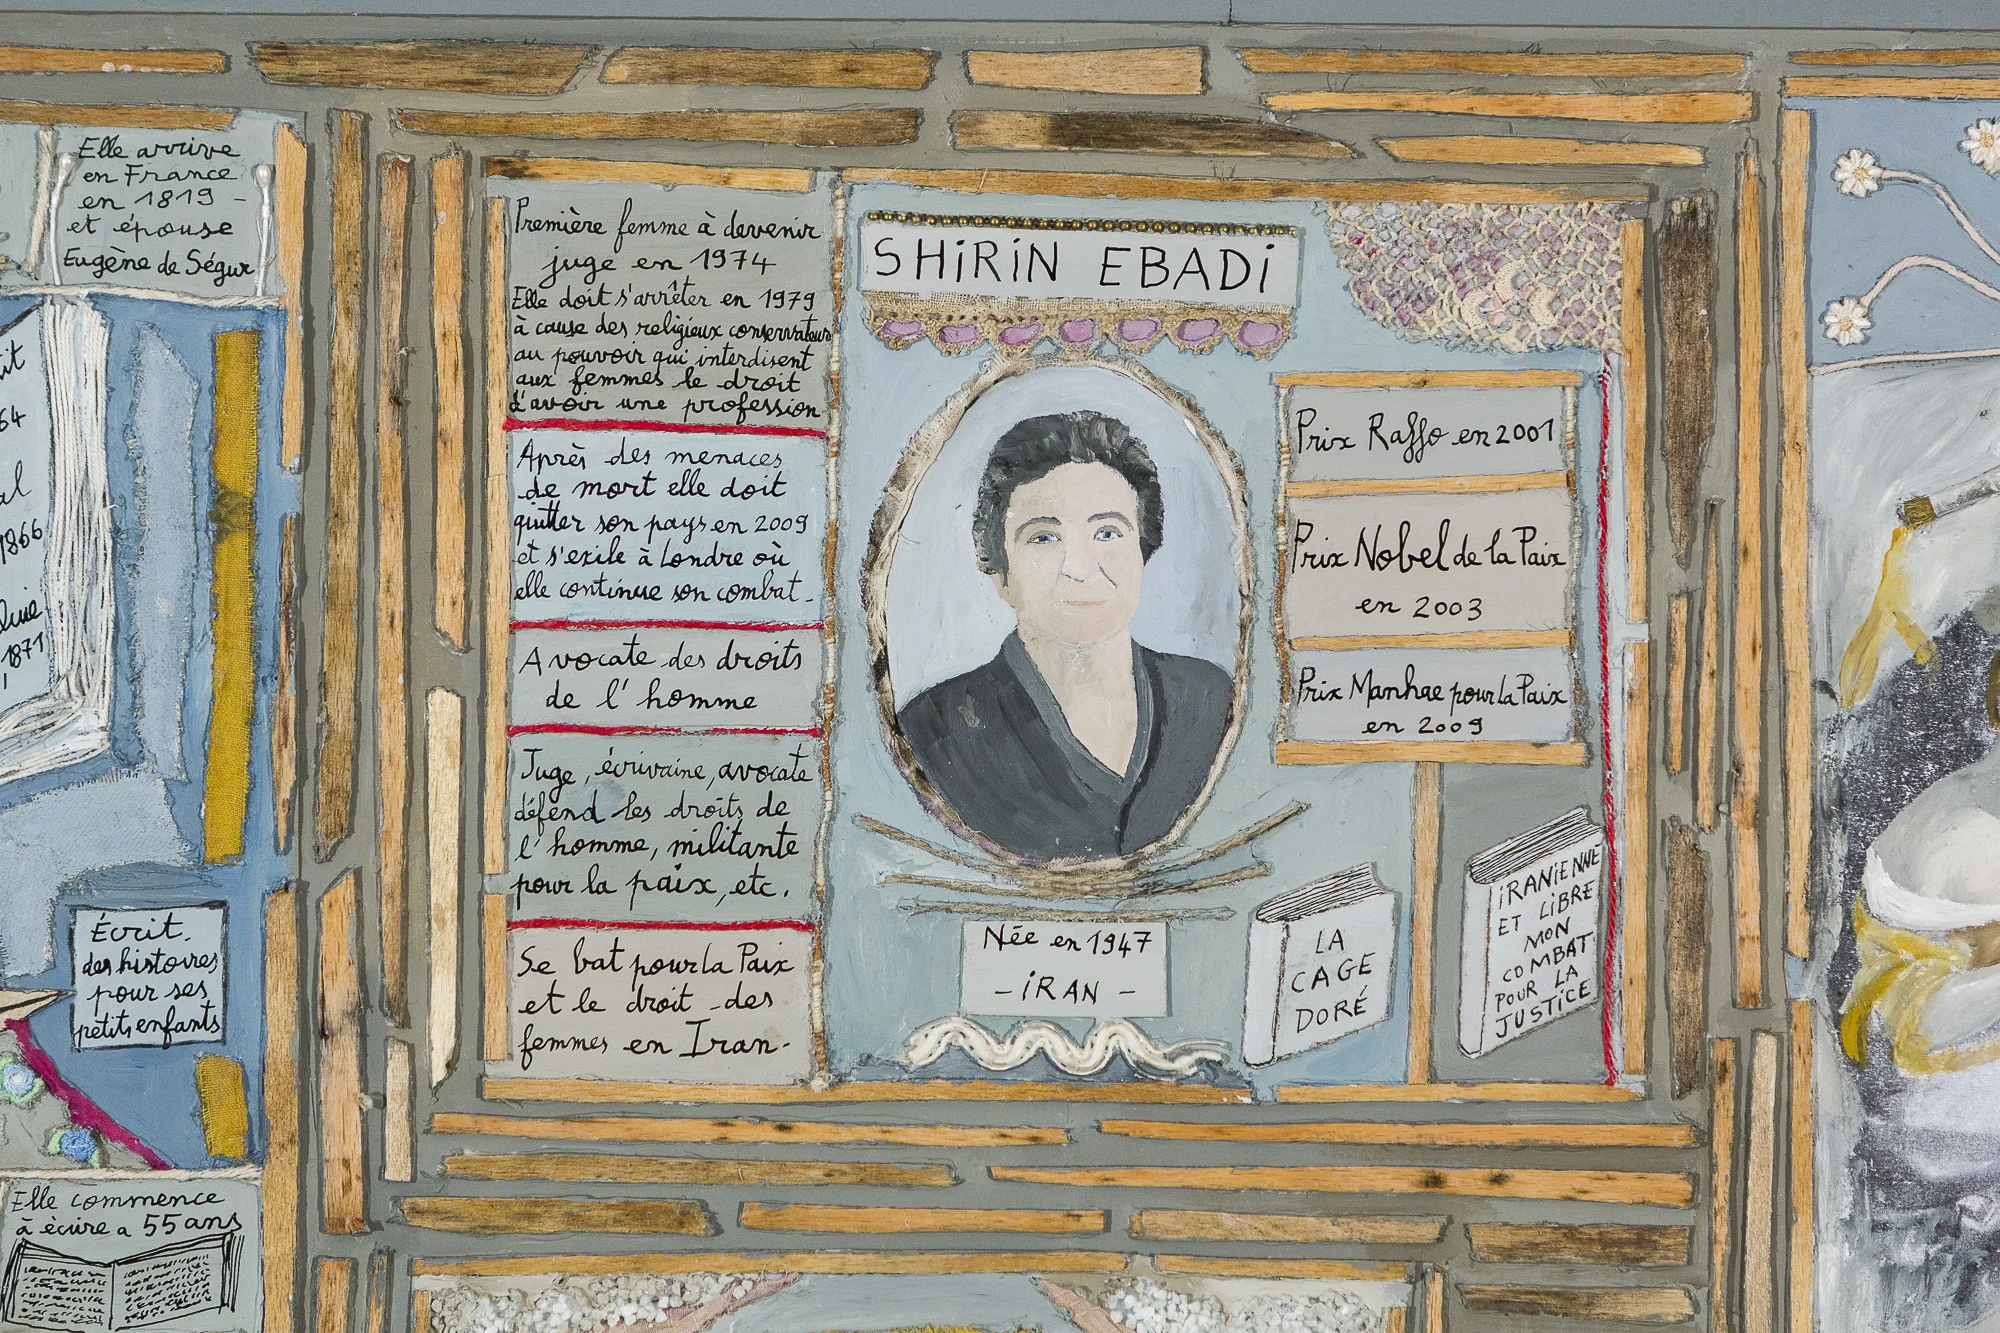 Elle arrive
en France
en 1819 -
et épouse
Eugène de Ségur
64
1866
1871
Écrit.
des histoires
pour ses
petits enfants
Elle commence
à écrire a 55 ans
Première femme à devenir
juge en 1974
Elle doit s'arrêter en 1979
à cause des religieux conservateurs
au pouvoir qui interdisent
aux femmes le droit
d'avoir une profession
Après des menaces
de mort elle doit
quitter son pays en 2009
et s'exile à Londre où
elle continue son combat.
Avocate des droits
de l'homme
Juge, écrivaine, avocate
défend les droits de
l'homme, militante
pour la paix, etc.
Se bat pour la Paix
et le droit des
femmes en Iran.
SHiRiN EBADi
Née en 1947
- iRAN -
Prix Raffo en 2001
Prix Nobel de la Paix
en 2003
Prix Manhae pour la Paix
en 2009
LA
CAGE
DORÉ
iRANiENNE
ET LiBRE
MON
COMBAT
POUR LA
JUSTiCE